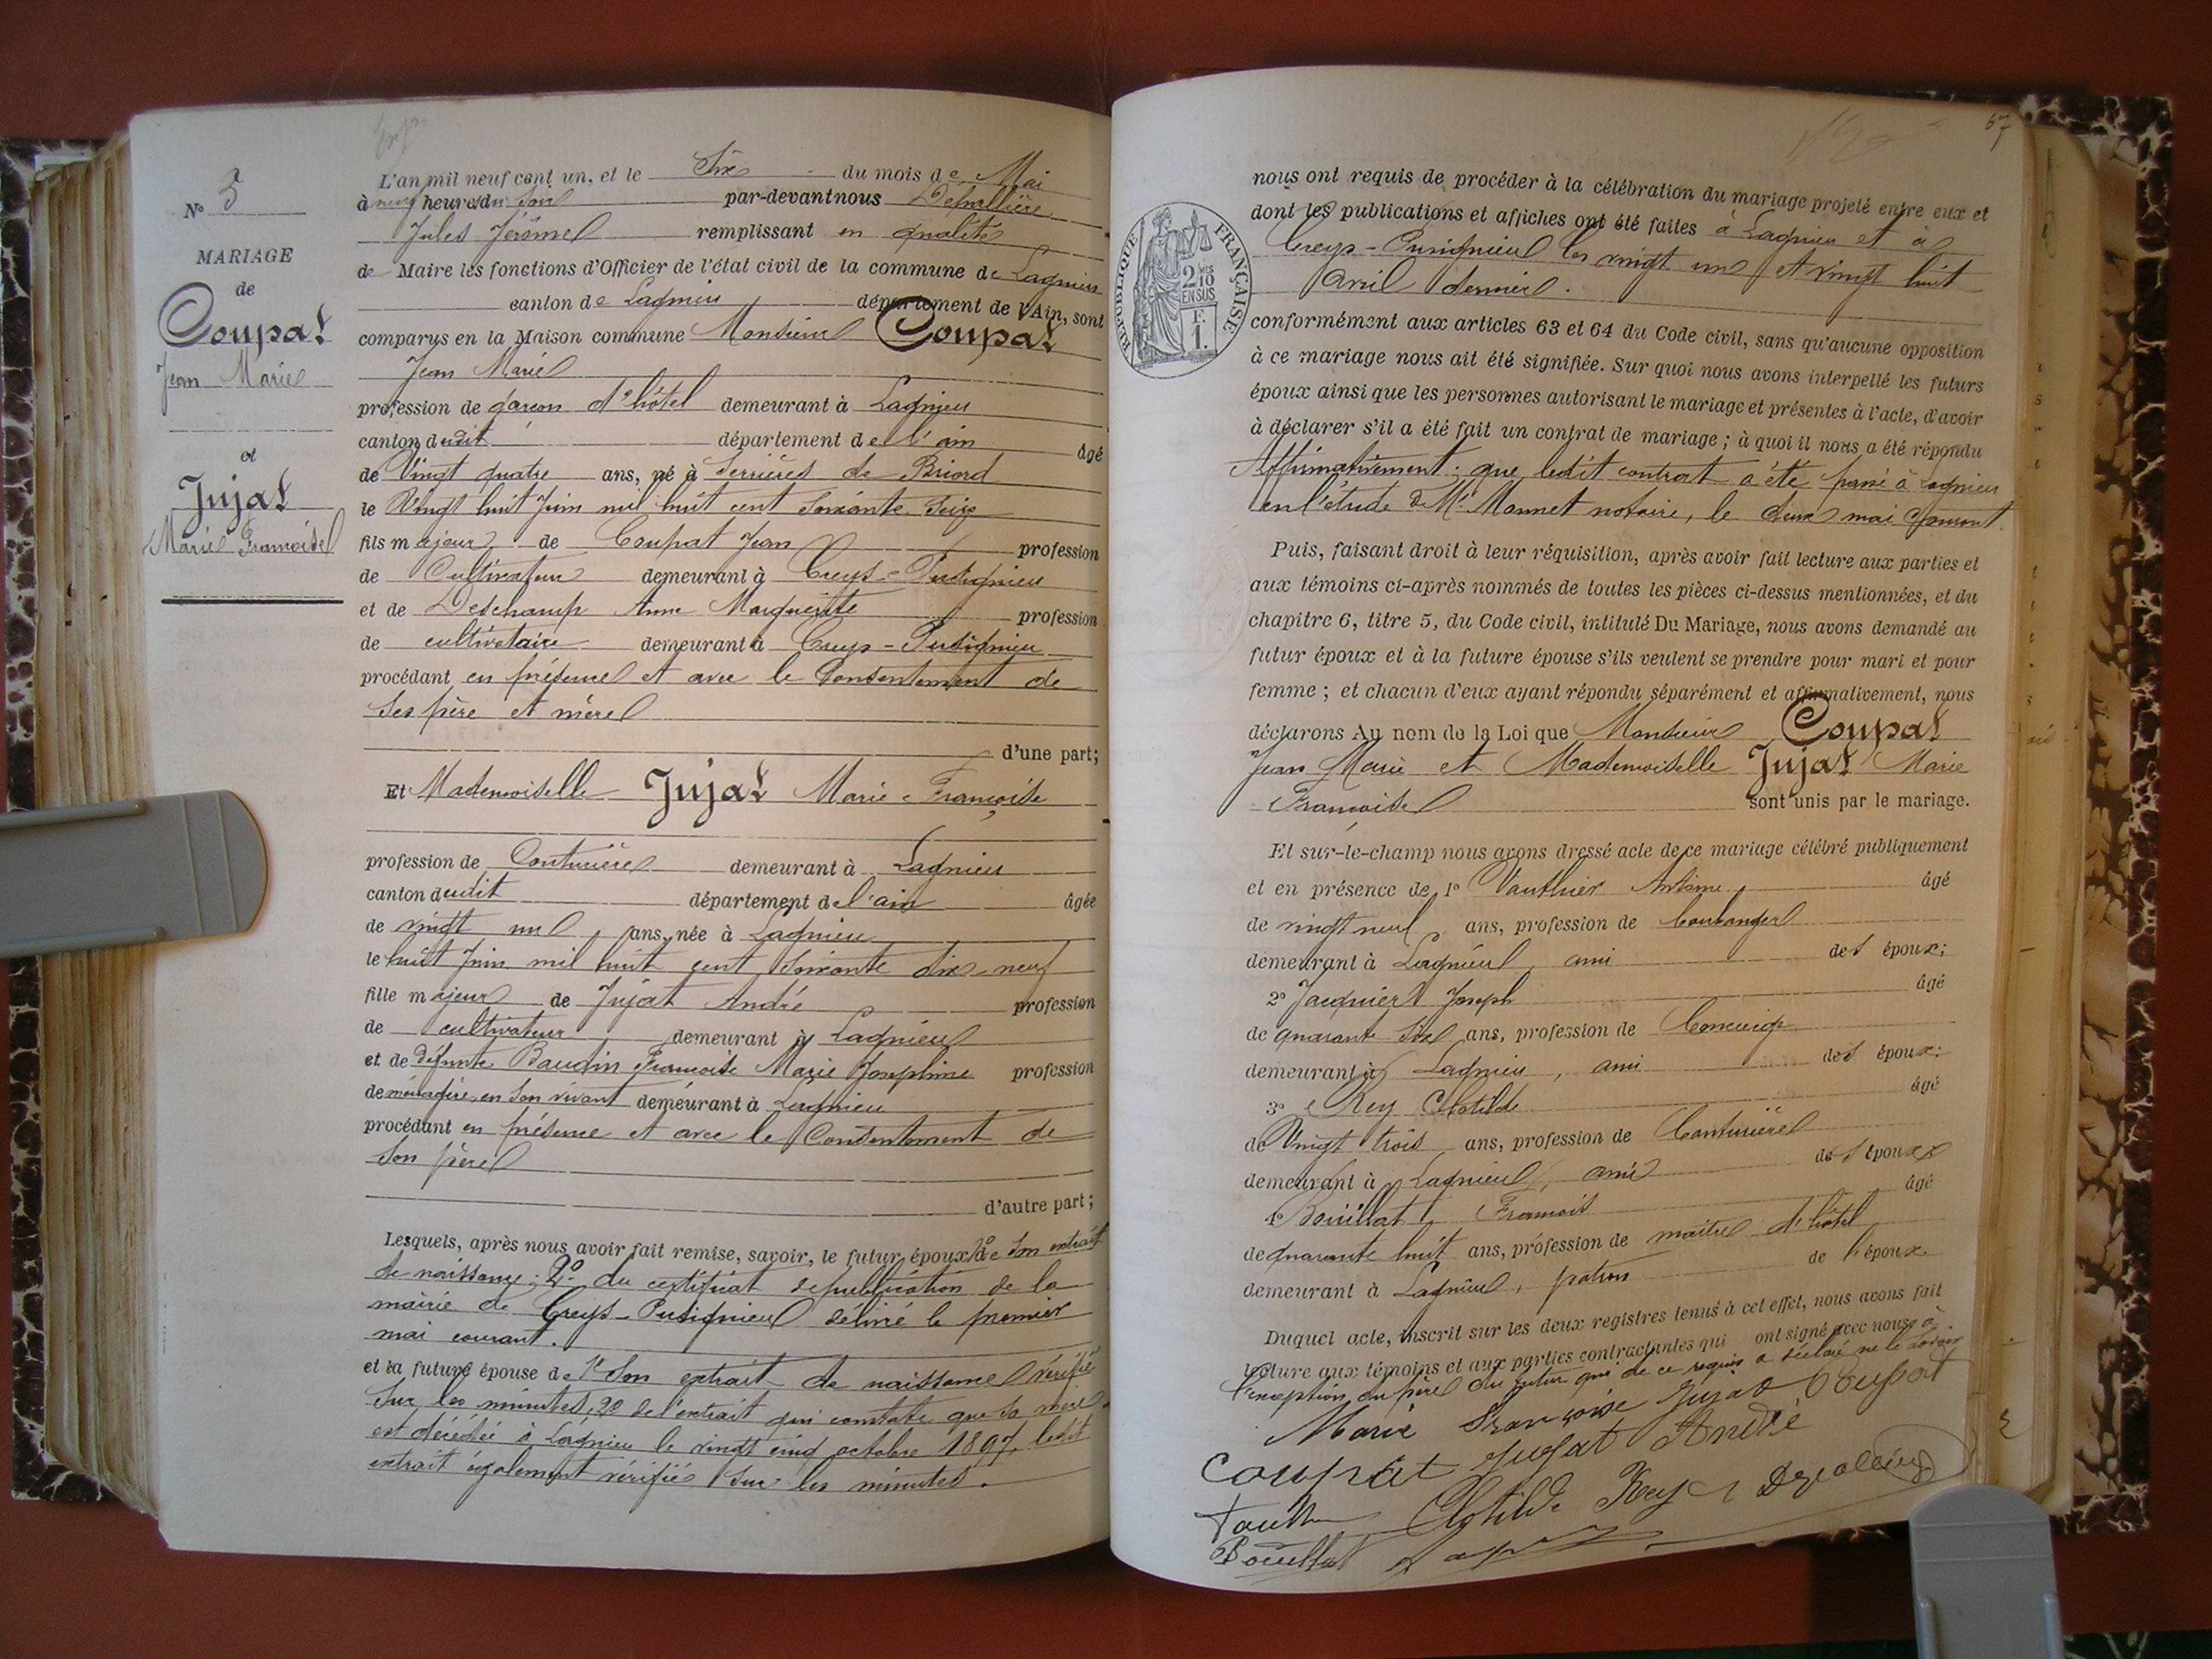 N° 5
MARIAGE
de
Coupat
Jean Marie
et
Jujat
Marie Françoise
L'an mil neuf cent un, et le Six du mois de Mai
à neuf heures du Soir par-devant nous
Jules Jérôme remplissant en qualité
de Maire les fonctions d'Officier de l'état civil de la commune de Lagnieu
canton de Lagnieu département de l'Ain, sont
comparus en la Maison commune Monsieur Coupat
Jean Marie
profession de garçon d'hôtel demeurant à Lagnieu
canton dudit département de l'ain âgé
de Vingt quatre ans, né à Serrières de Briord
le Vingt huit Juin mil huit cent Soixante Seize
fils majeur de Coupat Jean profession
de Cultivateur demeurant à Creys-Pusignieu
et de Deschamp Anne Marguerite profession
de cultivataire demeurant à Creys-Pusignieu
procédant en présence et avec le Consentement de
Ses père et mère
d'une part;
Et Mademoiselle Jujat Marie Françoise
profession de Couturière demeurant à Lagnieu
canton dudit département de l'ain âgée
de vingt un ans, née à Lagnieu
le huit Juin mil huit cent Soixante dix-neuf
fille majeur de Jujat André profession
de cultivateur demeurant à Lagnieu
et de défunte Baudin Françoise Marie Josephine profession
de ménagère en Son vivant demeurant à Lagnieu
procédant en présence et avec le Consentement de
Son père
d'autre part;
Lesquels, après nous avoir fait remise, savoir, le futur époux 1° de Son extrait
de naissance; 2° du certificat de publication de la
mairie de Creys-Pusignieu délivré le premier
mai courant.
et la future épouse de 1° Son extrait de naissance vérifié
Sur les minutes, 2° de l'extrait qui constate que sa mère
est décédée à Lagnieu le vingt cinq octobre 1897, ledit
extrait également vérifié Sur les minutes.
67
RÉPUBLIQUE FRANÇAISE
2 MES
10
EN SUS
F.
1.
nous ont requis de procéder à la célébration du mariage projeté entre eux et
dont les publications et affiches ont été faites à Lagnieu et à
Creys-Pusignieu les vingt un et vingt huit
Avril dernier.
conformément aux articles 63 et 64 du Code civil, sans qu'aucune opposition
à ce mariage nous ait été signifiée. Sur quoi nous avons interpellé les futurs
époux ainsi que les personnes autorisant le mariage et présentes à l'acte, d'avoir
à déclarer s'il a été fait un contrat de mariage; à quoi il nous a été répondu
Affirmativement: que ledit contrat a été passé à Lagnieu
en l'étude de Me Monnet notaire, le deux mai courant.
Puis, faisant droit à leur réquisition, après avoir fait lecture aux parties et
aux témoins ci-après nommés de toutes les pièces ci-dessus mentionnées, et du
chapitre 6, titre 5, du Code civil, intitulé Du Mariage, nous avons demandé au
futur époux et à la future épouse s'ils veulent se prendre pour mari et pour
femme; et chacun d'eux ayant répondu séparément et affirmativement, nous
déclarons Au nom de la Loi que Monsieur Coupat
Jean Marie et Mademoiselle Jujat Marie
Françoise sont unis par le mariage.
Et sur-le-champ nous avons dressé acte de ce mariage célébré publiquement
et en présence de 1° Vauthier âgé
de vingt neuf ans, profession de boulanger
demeurant à Lagnieu, ami des époux;
2° Jacquier Joseph âgé
de quarante Six ans, profession de Concierge
demeurant à Lagnieu, ami des époux;
3° Rey Clotilde âgé
de Vingt trois ans, profession de Couturière
demeurant à Lagnieu, amie des époux
4° Bouillat François âgé
de quarante huit ans, profession de maître d'hôtel
demeurant à Lagnieu, patron de l'époux.
Duquel acte, inscrit sur les deux registres tenus à cet effet, nous avons fait
lecture aux témoins et aux parties contractantes qui ont signé avec nous à
l'exception du père du futur qui de ce requis a déclaré ne le savoir
Marie Françoise Jujat Coupat
Coupat Jujat André
Vauth Clotilde Rey
Bouillat